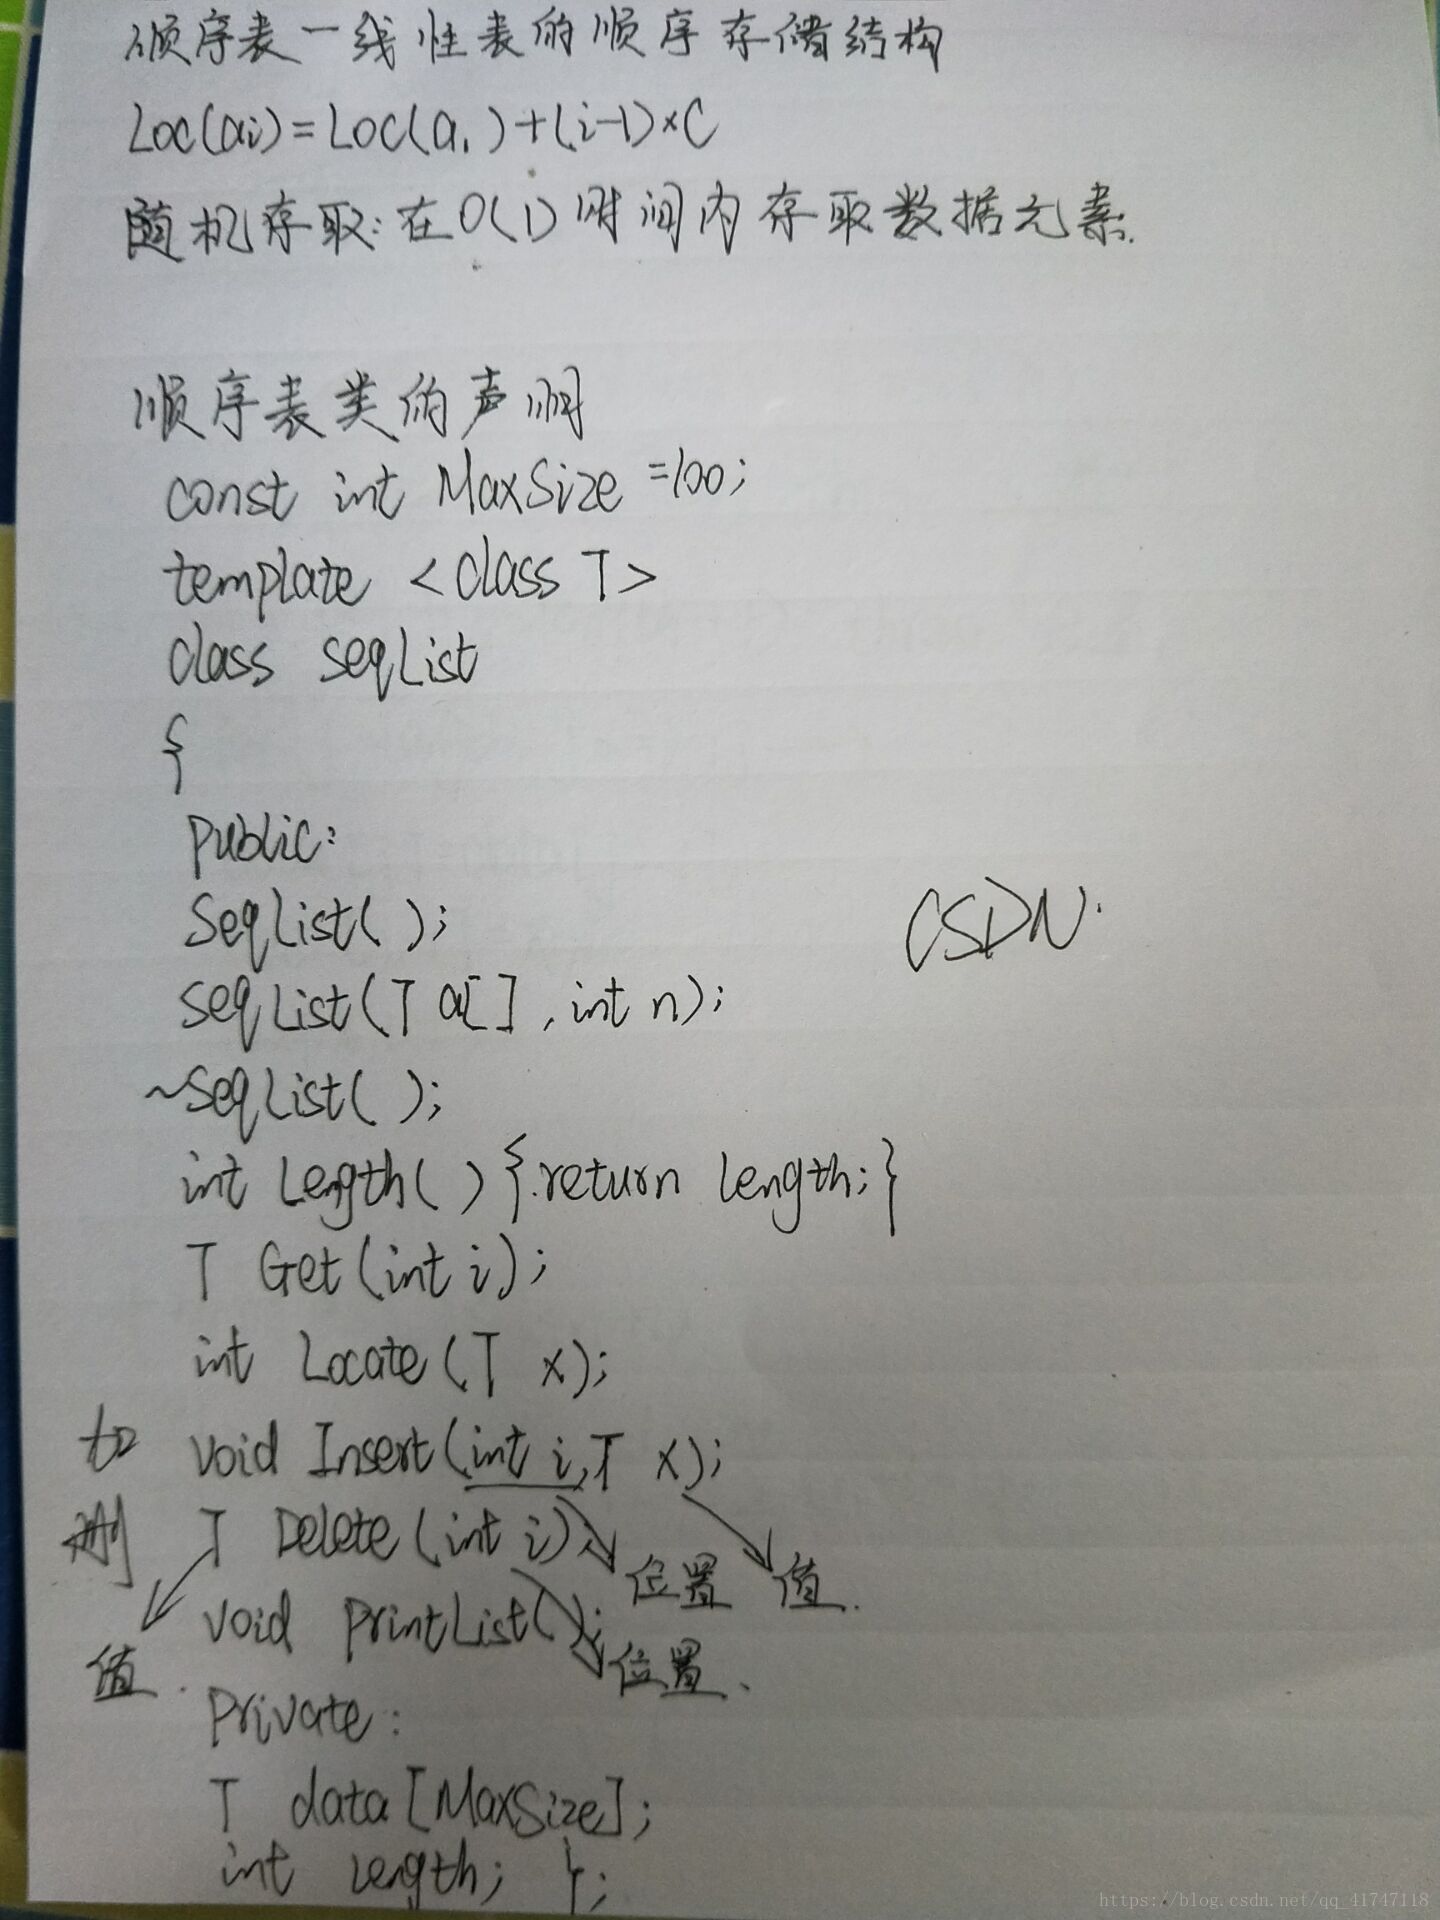 顺序表一线性表的顺序存储结构
Loc(ai)=Loc(a1)+(i-1)×C
随机存取:在O(1)时间内存取数据元素.
顺序表类的声明
const int MaxSize =100;
template <class T>
class seqList
{
public:
SeqList( );
CSDN.
seqList(T a[ ], int n);
~seqList( );
int Length( ) {return length;}
T Get(int i);
int Locate(T x);
加 void Insert(int i,T x);
删 T Delete(int i);
位置 值.
void printList( );
值. 位置.
private:
T data[MaxSize];
int length; };
https://blog.csdn.net/qq_41747118